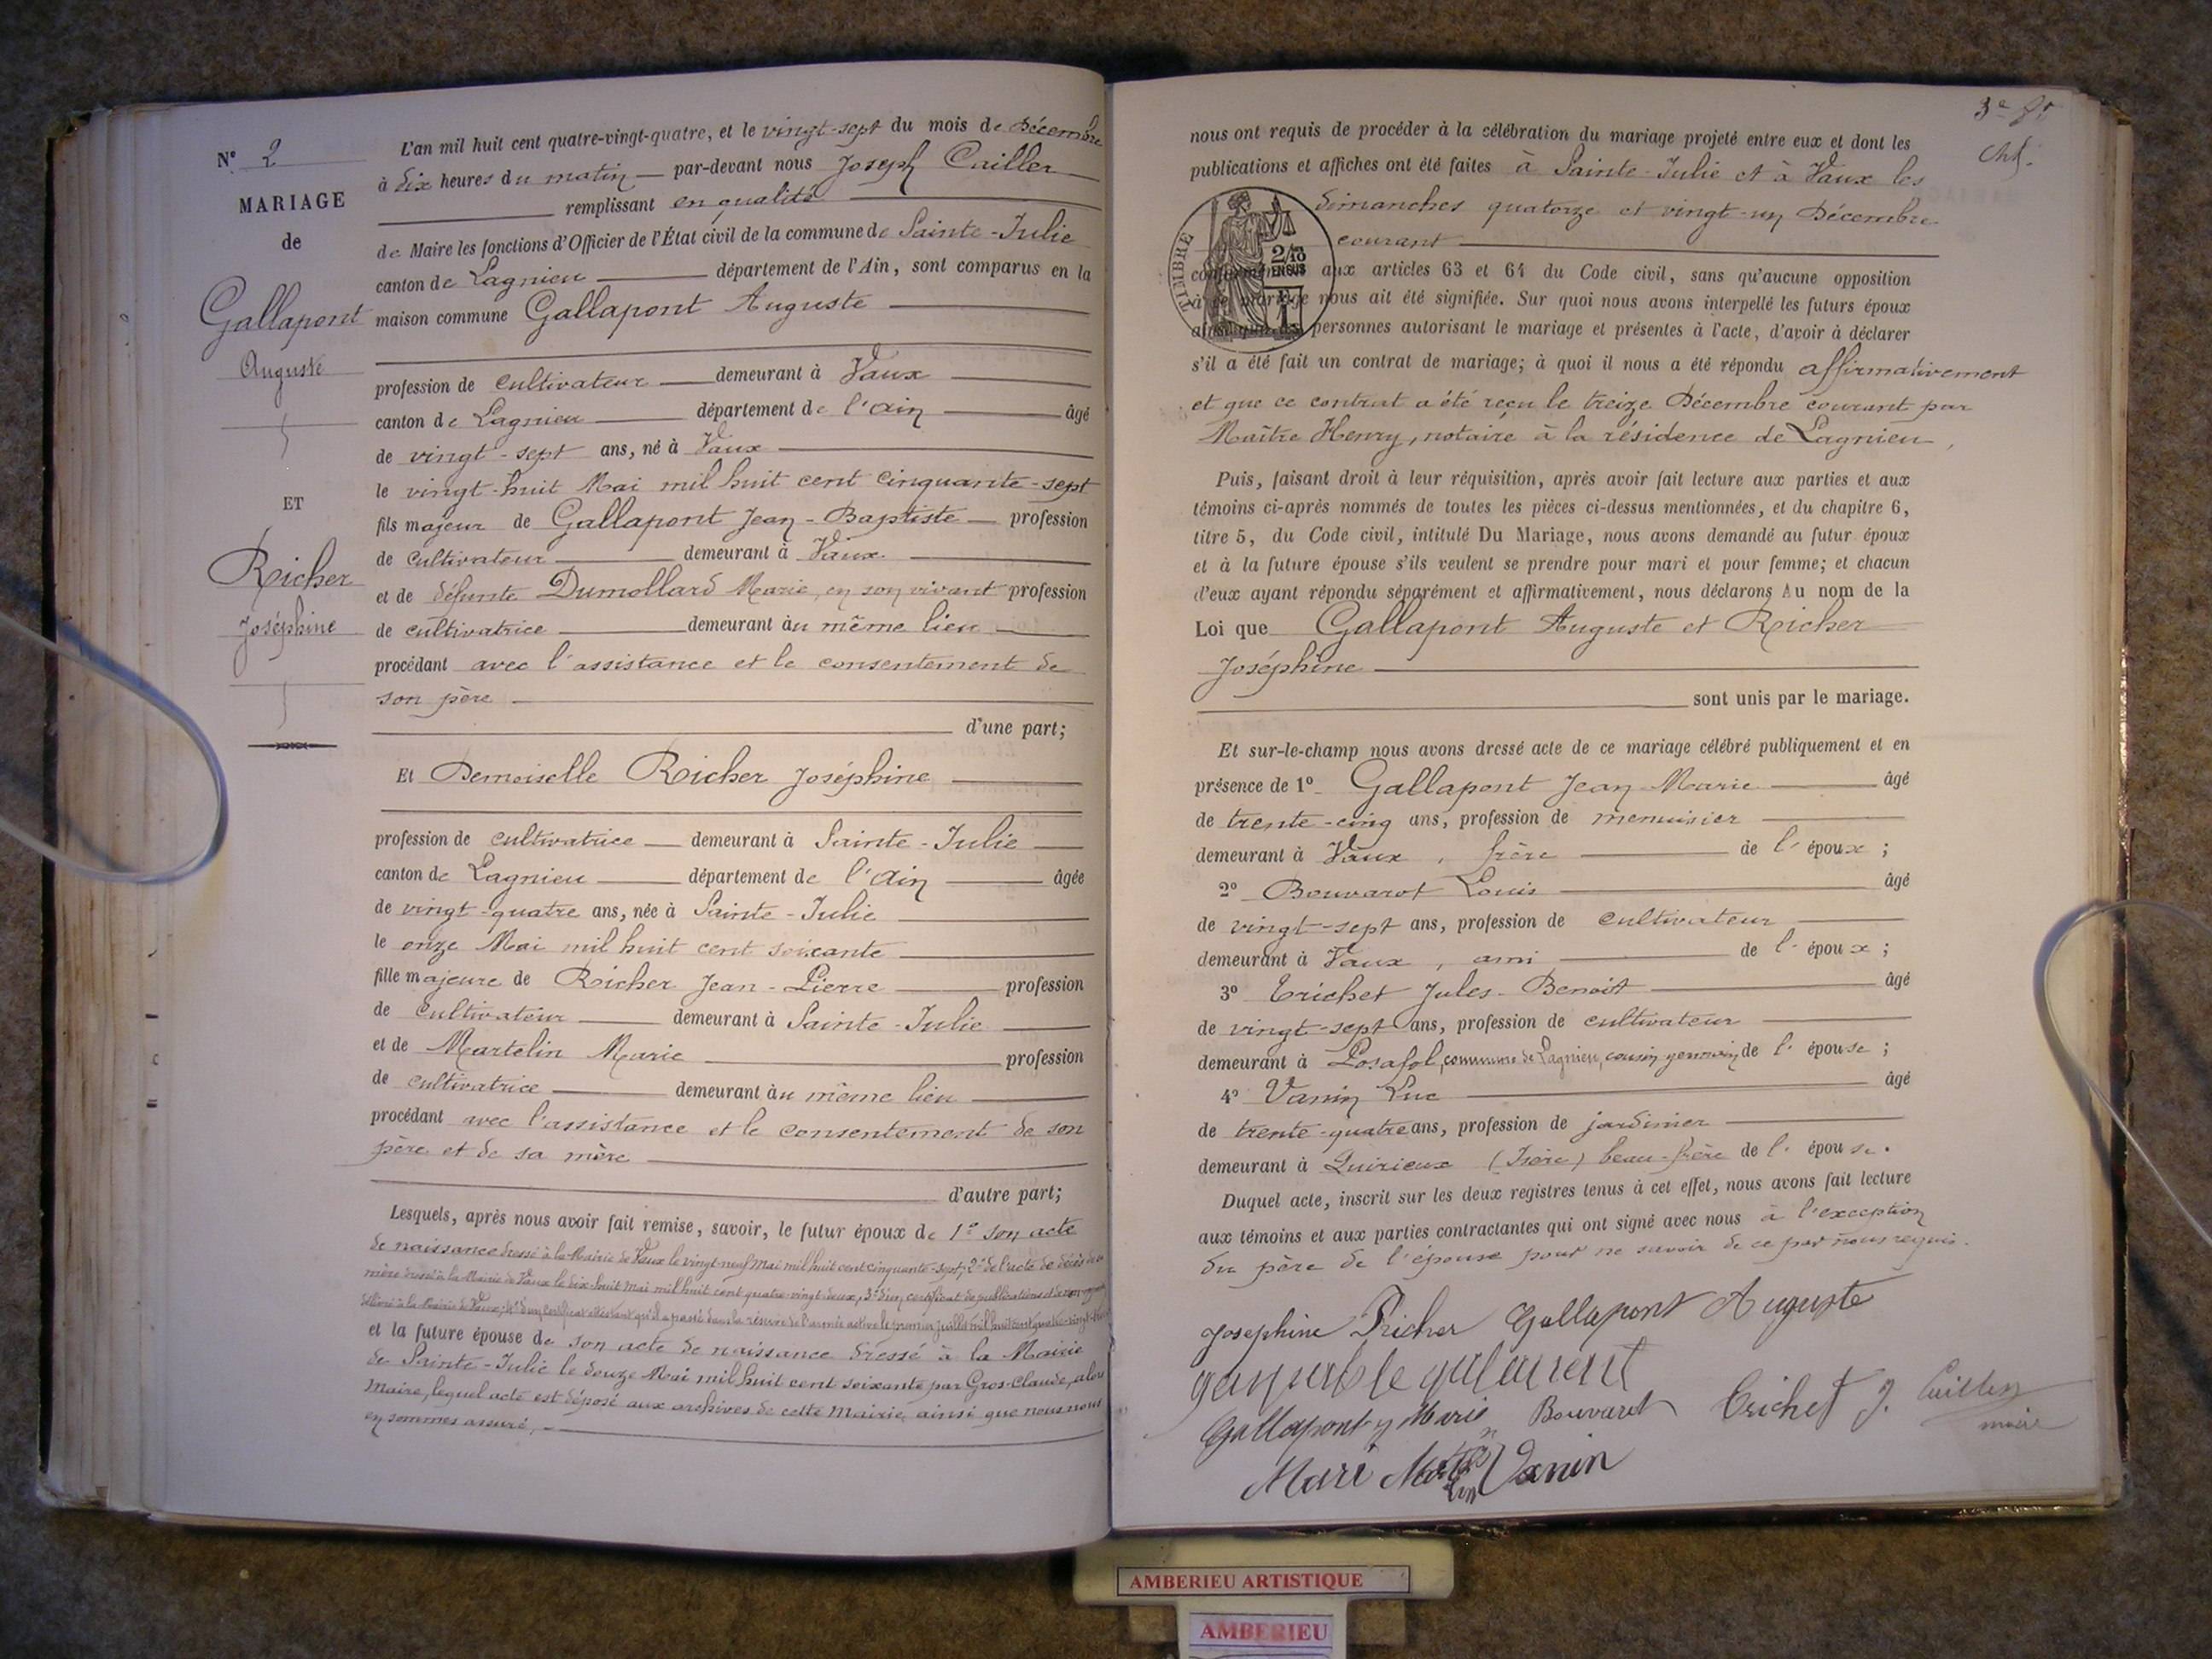 N° 2
MARIAGE
de
Gallapont
Auguste
ET
Richer
Joséphine
L'an mil huit cent quatre-vingt-quatre, et le vingt-sept du mois de Décembre
à dix heures du matin par-devant nous Joseph Cailler
remplissant en qualité
de Maire les fonctions d'Officier de l'État civil de la commune de Sainte-Julie
canton de Lagnieu département de l'Ain, sont comparus en la
maison commune Gallapont Auguste
profession de cultivateur demeurant à Vaux
canton de Lagnieu département de l'Ain âgé
de vingt-sept ans, né à Vaux
le vingt-huit Mai mil huit cent cinquante-sept
fils majeur de Gallapont Jean-Baptiste profession
de cultivateur demeurant à Vaux
et de défunte Dumollard Marie, en son vivant profession
de cultivatrice demeurant au même lieu
procédant avec l'assistance et le consentement de
son père
d'une part;
Et Demoiselle Richer Joséphine
profession de cultivatrice demeurant à Sainte-Julie
canton de Lagnieu département de l'Ain âgée
de vingt-quatre ans, née à Sainte-Julie
le onze Mai mil huit cent soixante
fille majeure de Richer Jean-Pierre profession
de cultivateur demeurant à Sainte-Julie
et de Martelin Marie profession
de cultivatrice demeurant au même lieu
procédant avec l'assistance et le consentement de son
père et de sa mère
d'autre part;
Lesquels, après nous avoir fait remise, savoir, le futur époux de 1° son acte
de naissance dressé à la Mairie de Vaux le vingt-neuf Mai mil huit cent cinquante-sept; 2° de l'acte de décès de sa
mère dressé à la Mairie de Vaux le dix-huit Mai mil huit cent quatre-vingt-deux, 3° d'un certificat de publications et de non
délivré à la Mairie de Vaux; 4° d'un certificat attestant qu'il a passé dans la réserve de l'armée active le premier juillet mil huit cent quatre-vingt
et la future épouse de son acte de naissance dressé à la Mairie
de Sainte-Julie le douze Mai mil huit cent soixante par Gros-Claude, alors
Maire, lequel acte est déposé aux archives de cette Mairie, ainsi que nous nous
en sommes assuré,
3e
nous ont requis de procéder à la célébration du mariage projeté entre eux et dont les
publications et affiches ont été faites à Sainte-Julie et à Vaux les
dimanches quatorze et vingt-un Décembre
courant
TIMBRE
2/10
EN SUS
conformément aux articles 63 et 64 du Code civil, sans qu'aucune opposition
à ce mariage nous ait été signifiée. Sur quoi nous avons interpellé les futurs époux
ainsi que les personnes autorisant le mariage et présentes à l'acte, d'avoir à déclarer
s'il a été fait un contrat de mariage; à quoi il nous a été répondu affirmativement
et que ce contrat a été reçu le treize Décembre courant par
Maître Henry, notaire à la résidence de Lagnieu,
Puis, faisant droit à leur réquisition, après avoir fait lecture aux parties et aux
témoins ci-après nommés de toutes les pièces ci-dessus mentionnées, et du chapitre 6,
titre 5, du Code civil, intitulé Du Mariage, nous avons demandé au futur époux
et à la future épouse s'ils veulent se prendre pour mari et pour femme; et chacun
d'eux ayant répondu séparément et affirmativement, nous déclarons Au nom de la
Loi que Gallapont Auguste et Richer
Joséphine
sont unis par le mariage.
Et sur-le-champ nous avons dressé acte de ce mariage célébré publiquement et en
présence de 1° Gallapont Jean-Marie âgé
de trente-cinq ans, profession de menuisier
demeurant à Vaux, frère de l'époux;
2° Bouvarot Louis âgé
de vingt-sept ans, profession de cultivateur
demeurant à Vaux, ami de l'époux;
3° Trichet Jules-Benoît âgé
de vingt-sept ans, profession de cultivateur
demeurant à Posafol, commune de Lagnieu, cousin germain de l'épouse;
4° Vanin Luc âgé
de trente-quatre ans, profession de jardinier
demeurant à Quirieux (Isère) beau-frère de l'épouse.
Duquel acte, inscrit sur les deux registres tenus à cet effet, nous avons fait lecture
aux témoins et aux parties contractantes qui ont signé avec nous à l'exception
du père de l'épouse pour ne savoir de ce par nous requis.
Josephine Richer Gallapont Auguste
Gallapont j Marie Bouvaret Trichet J. Cailler
maire
Mari Vanin
AMBERIEU ARTISTIQUE
AMBERIEU